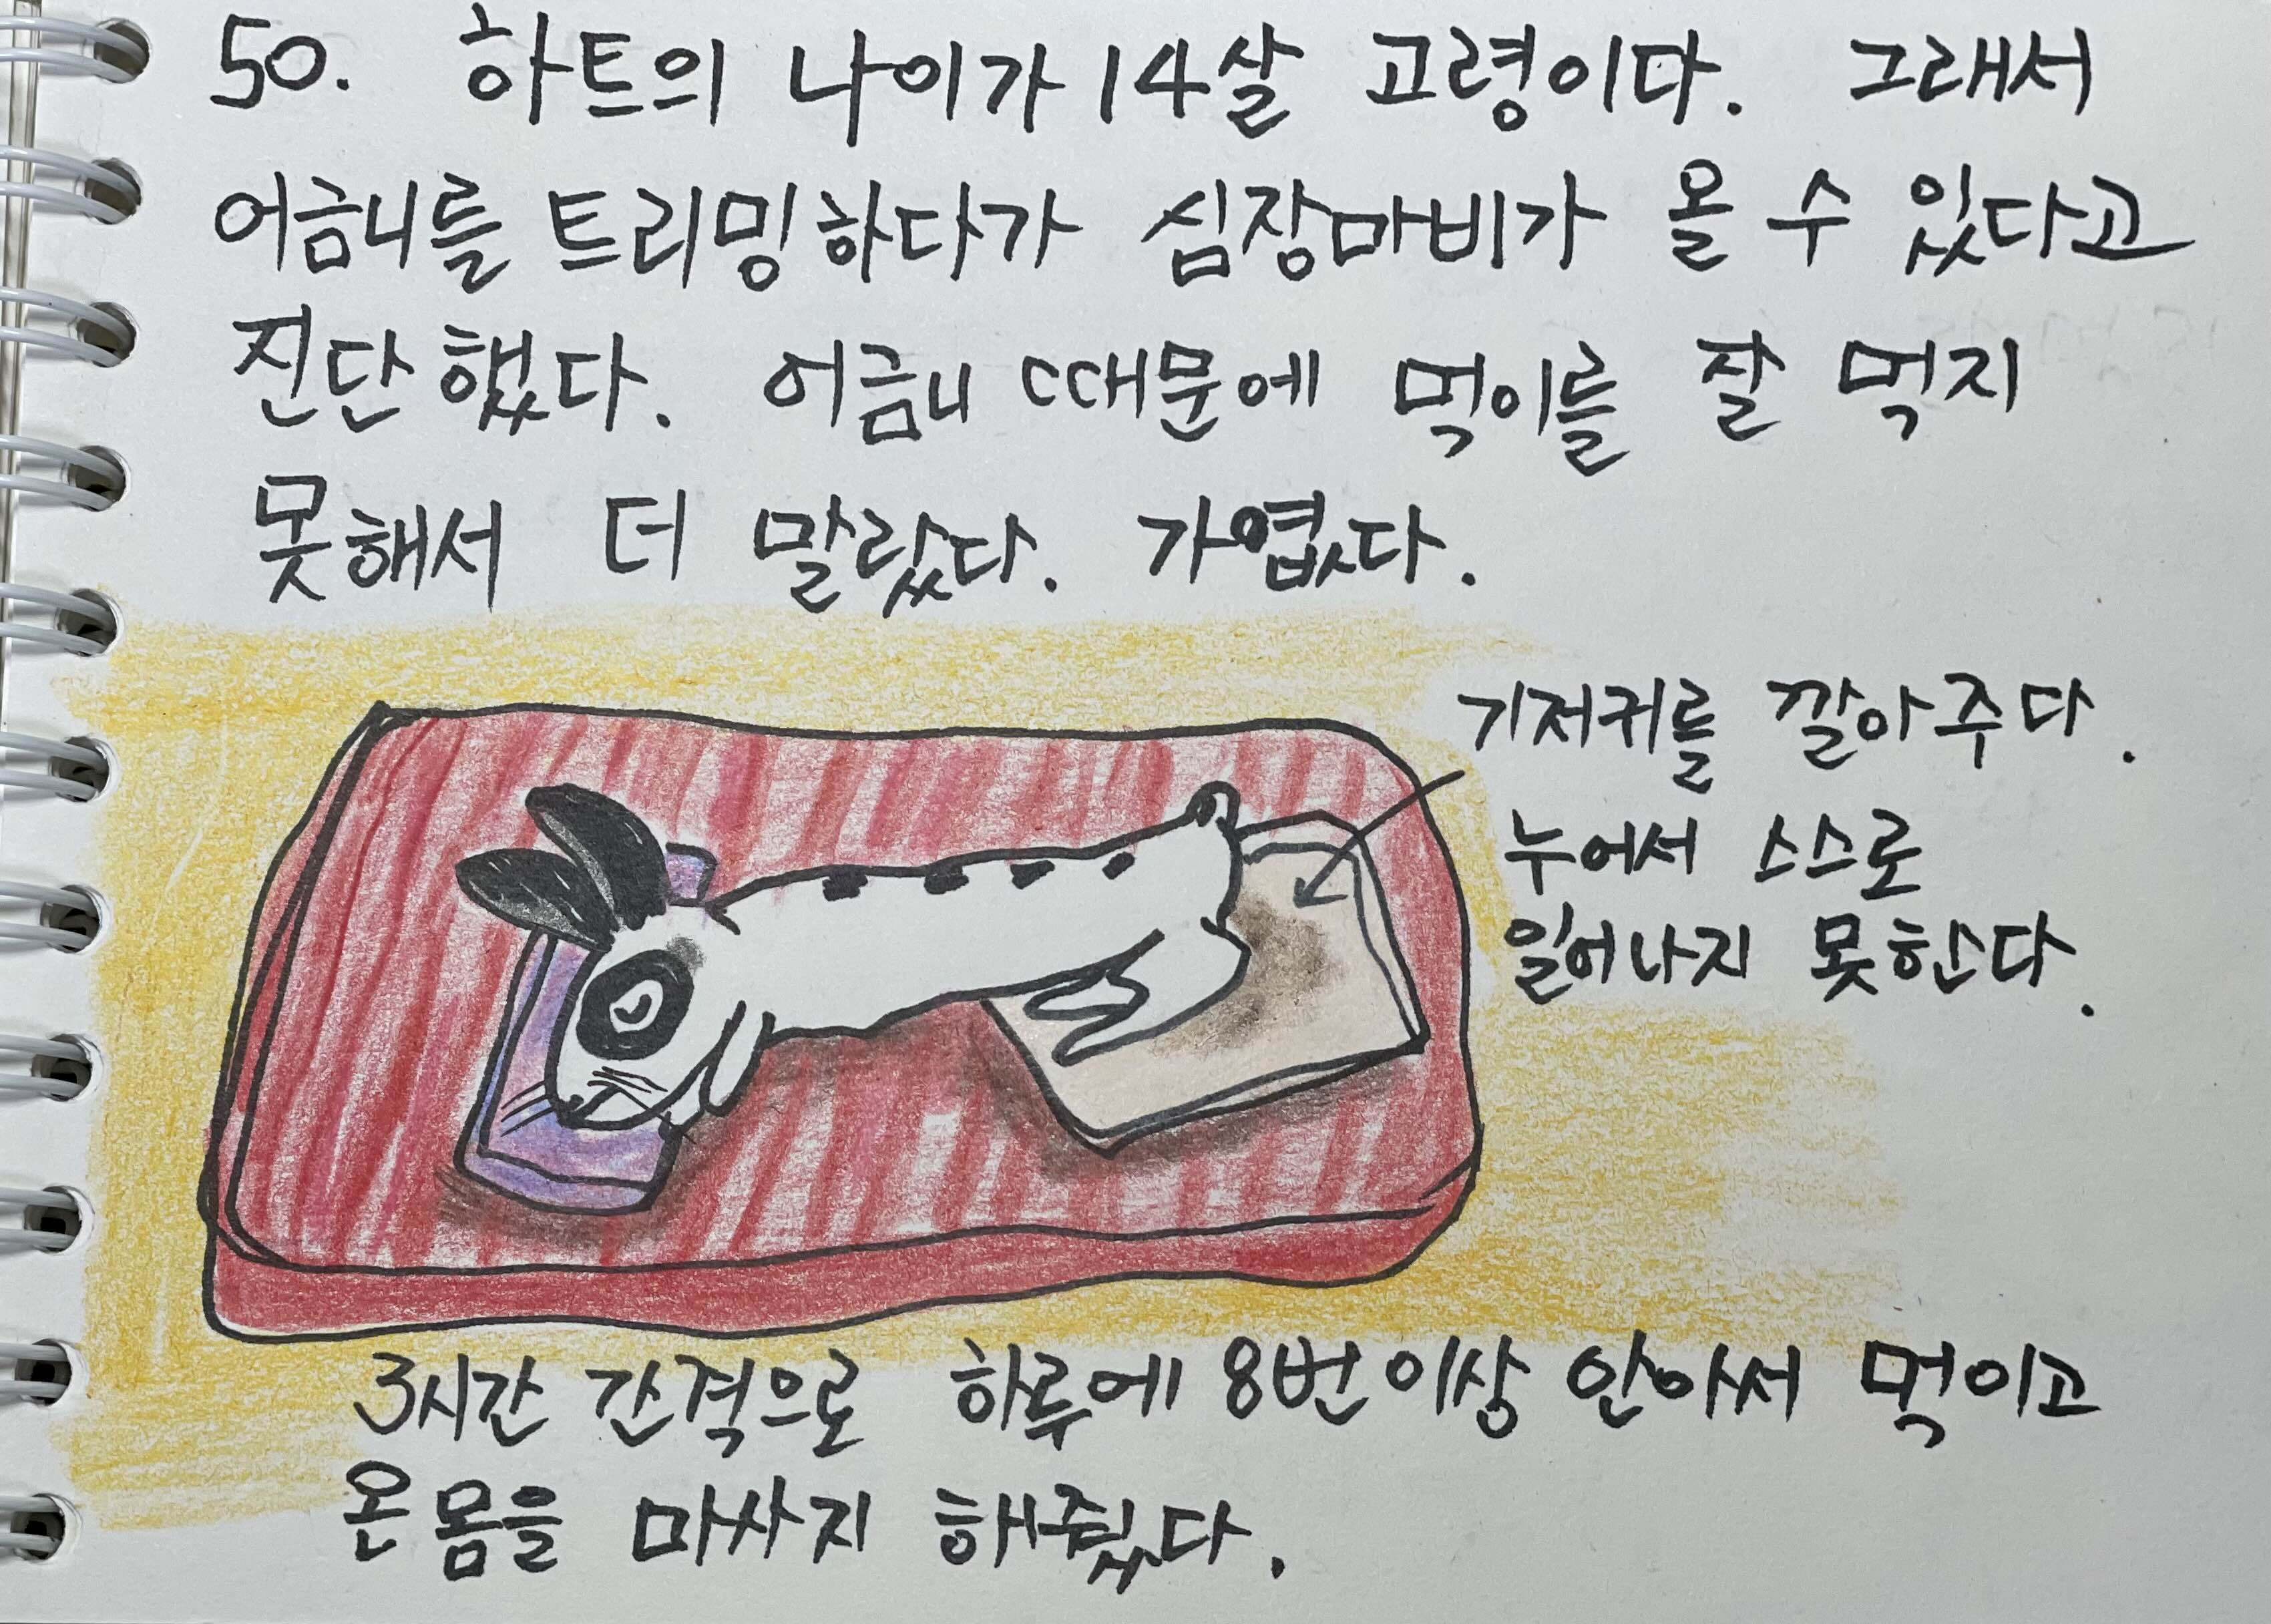 50. 하트의 나이가 14살 고령이다. 그래서
어금니를 트리밍하다가 심장마비가 올 수 있다고
진단했다. 어금니 때문에 먹이를 잘 먹지
못해서 더 말랐다. 가엾다.
기저귀를 깔아주다.
누어서 스스로
일어나지 못한다.
3시간 간격으로 하루에 8번이상 안아서 먹이고
온몸을 마사지 해줬다.